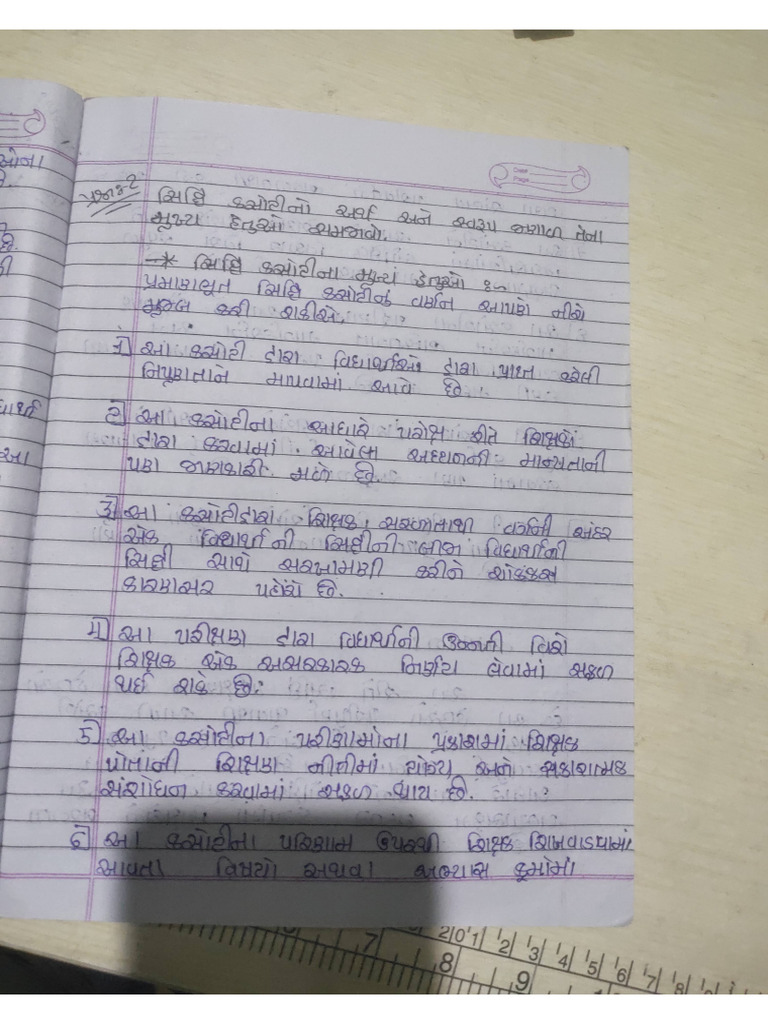 પ્રશ્ન-૨ સિદ્ધિ કસોટીનો અર્થ અને સ્વરૂપ જણાવી તેના
મુખ્ય હેતુઓ સમજાવો.
→* સિદ્ધિ કસોટીના મુખ્ય હેતુઓ :-
પ્રમાણભૂત સિદ્ધિ કસોટીનું વર્ણન આપણે નીચે
મુજબ કરી શકીએ.
1) આ કસોટી દ્વારા વિદ્યાર્થીઓ દ્વારા પ્રાપ્ત કરેલી
નિપુણતાને માપવામાં આવે છે
૨) આ કસોટીના આધારે પરોક્ષ રીતે શિક્ષકો
દ્વારા કરવામાં આવેલા અધ્યાપનની માન્યતાની
પણ જાણકારી મળે છે.
3) આ કસોટીદ્વારા શિક્ષક સરળતાથી વર્ગની અંદર
એક વિદ્યાર્થીની સિદ્ધીની બીજા વિદ્યાર્થીની
સિદ્ધી સાથે સરખામણી કરીને ચોક્કસ
કારણસર પહોંચે છે.
૪) આ પરીક્ષણ દ્વારા વિદ્યાર્થીની ઉન્નતી વિશે
શિક્ષક એક અસરકારક નિર્ણય લેવામાં સફળ
થઈ શકે છે.
5) આ કસોટીના પરીણામોના પ્રકાશમાં શિક્ષક
પોતાની શિક્ષણ નીતીમાં યોગ્ય અને સકારાત્મક
સંશોધન કરવામાં સફળ થાય છે.
૬) આ કસોટીના પરિણામ ઉપરથી શિક્ષક શિખવાડવામાં
આવતા વિષયો અથવા અભ્યાસ ક્રમોમાં